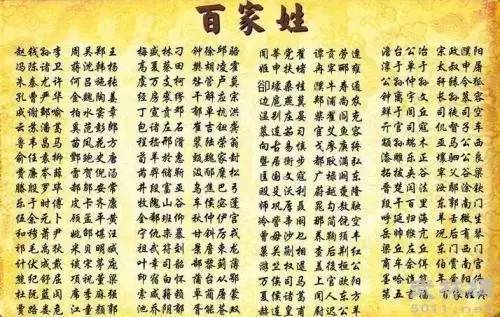 百家姓
赵钱孙李 周吴郑王
冯陈褚卫 蒋沈韩杨
朱秦尤许 何吕施张
孔曹严华 金魏陶姜
戚谢邹喻 柏水窦章
云苏潘葛 奚范彭郎
鲁韦昌马 苗凤花方
俞任袁柳 酆鲍史唐
费廉岑薛 雷贺倪汤
滕殷罗毕 郝邬安常
乐于时傅 皮卞齐康
伍余元卜 顾孟平黄
和穆萧尹 姚邵湛汪
祁毛禹狄 米贝明臧
计伏成戴 谈宋茅庞
熊纪舒屈 项祝董梁
杜阮蓝闵 席季麻强
贾路娄危 江童颜郭
梅盛林刁 钟徐邱骆
高夏蔡田 樊胡凌霍
虞万支柯 昝管卢莫
经房裘缪 干解应宗
丁宣贲邓 郁单杭洪
包诸左石 崔吉钮龚
程嵇邢滑 裴陆荣翁
荀羊於惠 甄曲家封
芮羿储靳 汲邴糜松
井段富巫 乌焦巴弓
牧隗山谷 车侯宓蓬
全郗班仰 秋仲伊宫
宁仇栾暴 甘钭厉戎
祖武符刘 景詹束龙
叶幸司韶 郜黎蓟薄
印宿白怀 蒲邰从鄂
索咸籍赖 卓蔺屠蒙
闻莘党翟 谭贡劳逄
姬申扶堵 冉宰郦雍
郤璩桑桂 濮牛寿通
边扈燕冀 郏浦尚农
温别庄晏 柴瞿阎充
慕连茹习 宦艾鱼容
向古易慎 戈廖庾终
暨居衡步 都耿满弘
匡国文寇 广禄阙东
欧殳沃利 蔚越夔隆
师巩厍聂 晁勾敖融
冷訾辛阚 那简饶空
曾毋沙乜 养鞠须丰
巢关蒯相 查后荆红
游竺权逯 盖益桓公
万俟司马 上官欧阳
夏侯诸葛 闻人东方
赫连皇甫 尉迟公羊
澹台公冶 宗政濮阳
淳于单于 太叔申屠
公孙仲孙 轩辕令狐
钟离宇文 长孙慕容
鲜于闾丘 司徒司空
亓官司寇 仉督子车
颛孙端木 巫马公西
漆雕乐正 壤驷公良
拓跋夹谷 宰父谷梁
晋楚闫法 汝鄢涂钦
段干百里 东郭南门
呼延归海 羊舌微生
岳帅缑亢 况后有琴
梁丘左丘 东门西门
商牟佘佴 伯赏南宫
墨哈谯笪 年爱阳佟
第五言福 百家姓终